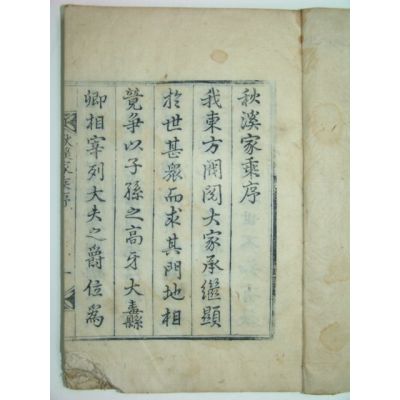 秋溪家乘序
我東方閥閱大家承繼顯
於世甚衆而求其門地相
競爭以子孫之高牙大纛縣
卿相宰列大夫之爵位爲
秋溪家乘序